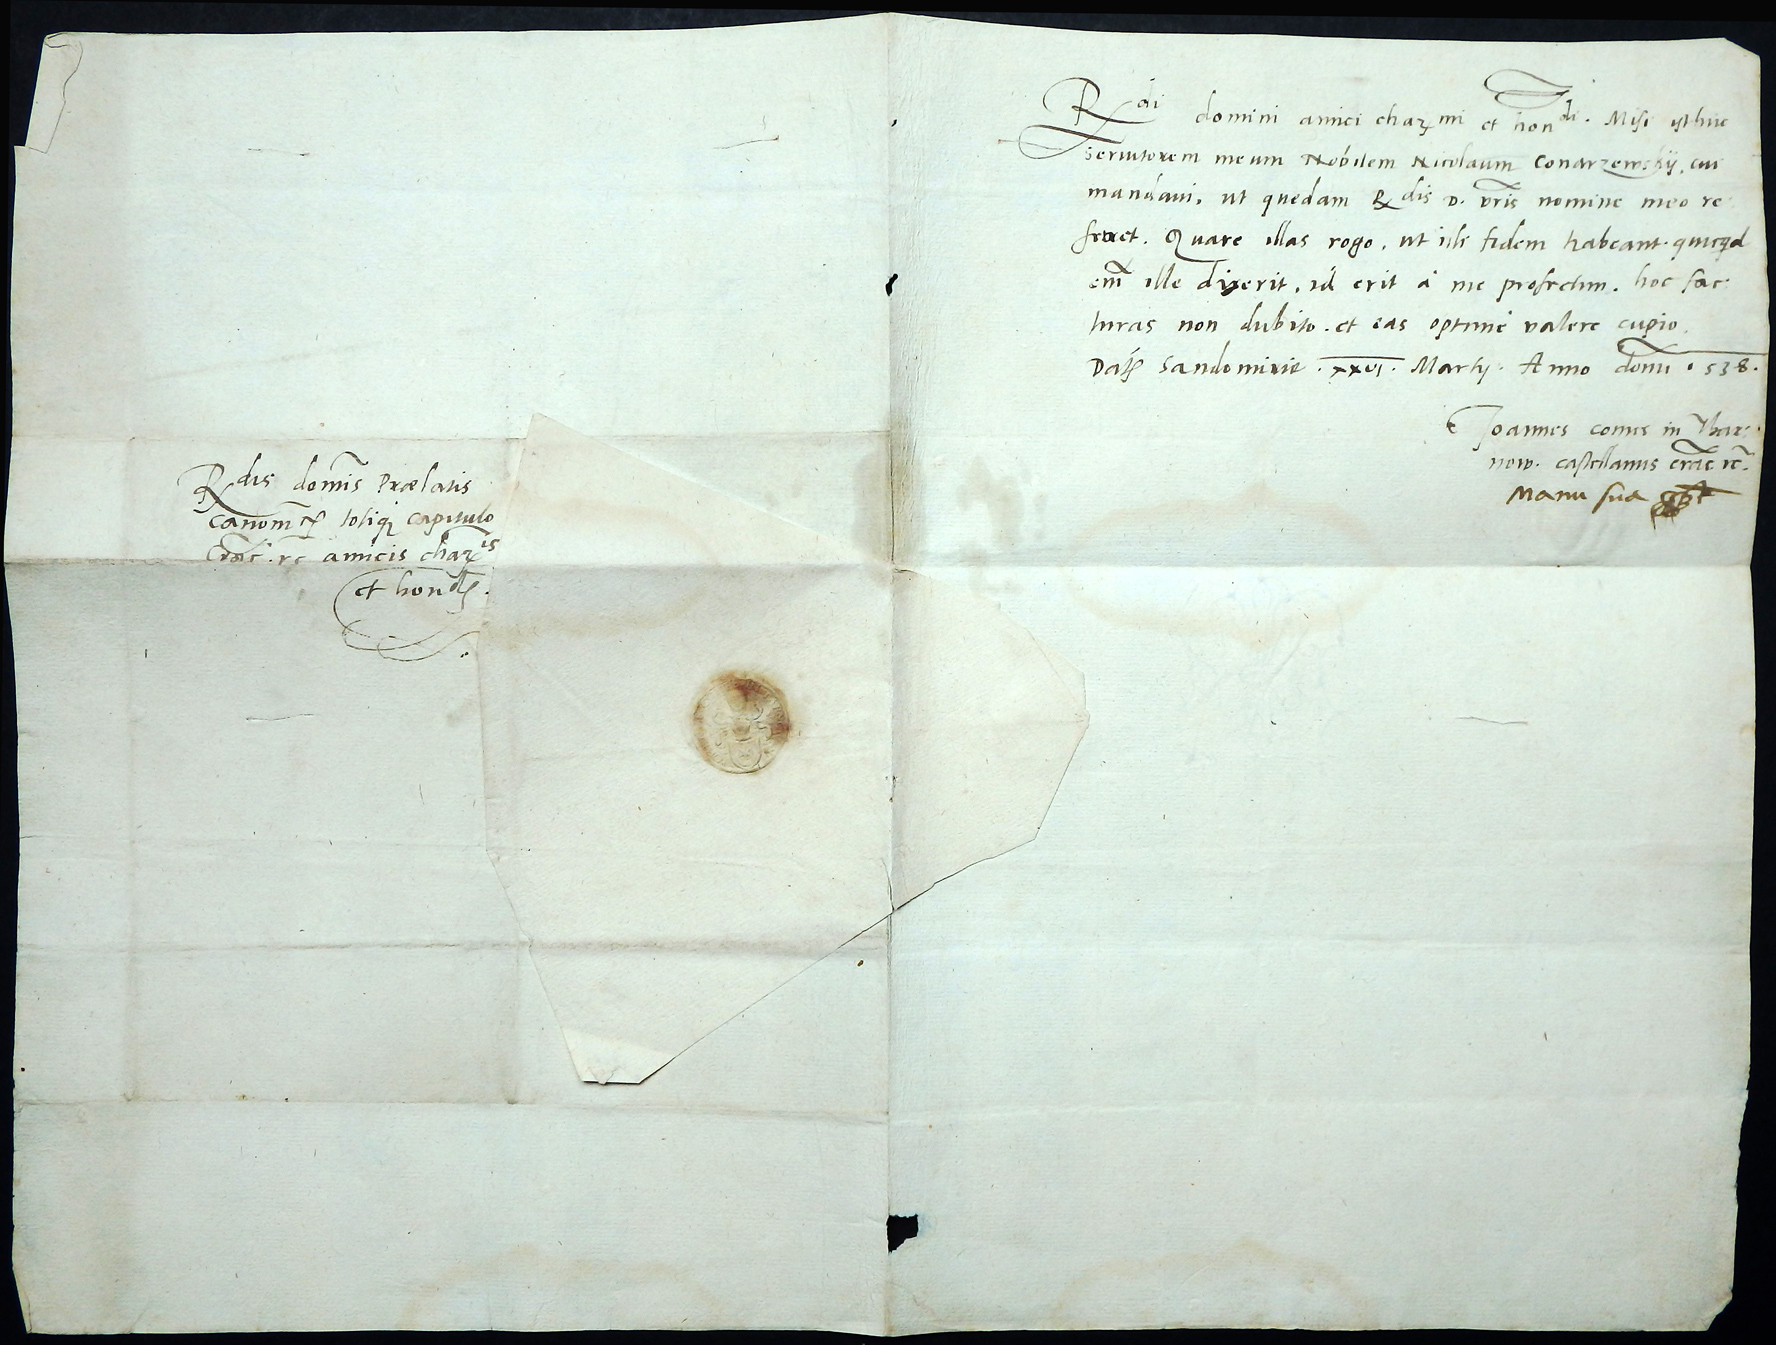 Rdi domini amici charmi et hondi. Misi isthuc
servitorem meum Nobilem Nicolaum Conarzewskij, cui
mandavi, ut quedam Rdis D. vris nomine meo re
ferret. Quare illas rogo, ut illi fidem habeant. quicqd
em ille dixerit, id erit à me profectum. hoc fac
turas non dubito. et eas optime valere cupio.
Dat Sandomirie. xxvi. Martij. Anno domi 1538.
Joannes comes in Thar
now. castellanus crac. rc.
Manu sua sspt
Rdis domis Prælatis
canonicis totiq capitulo
Crac. rc amicis charis
et hondis.